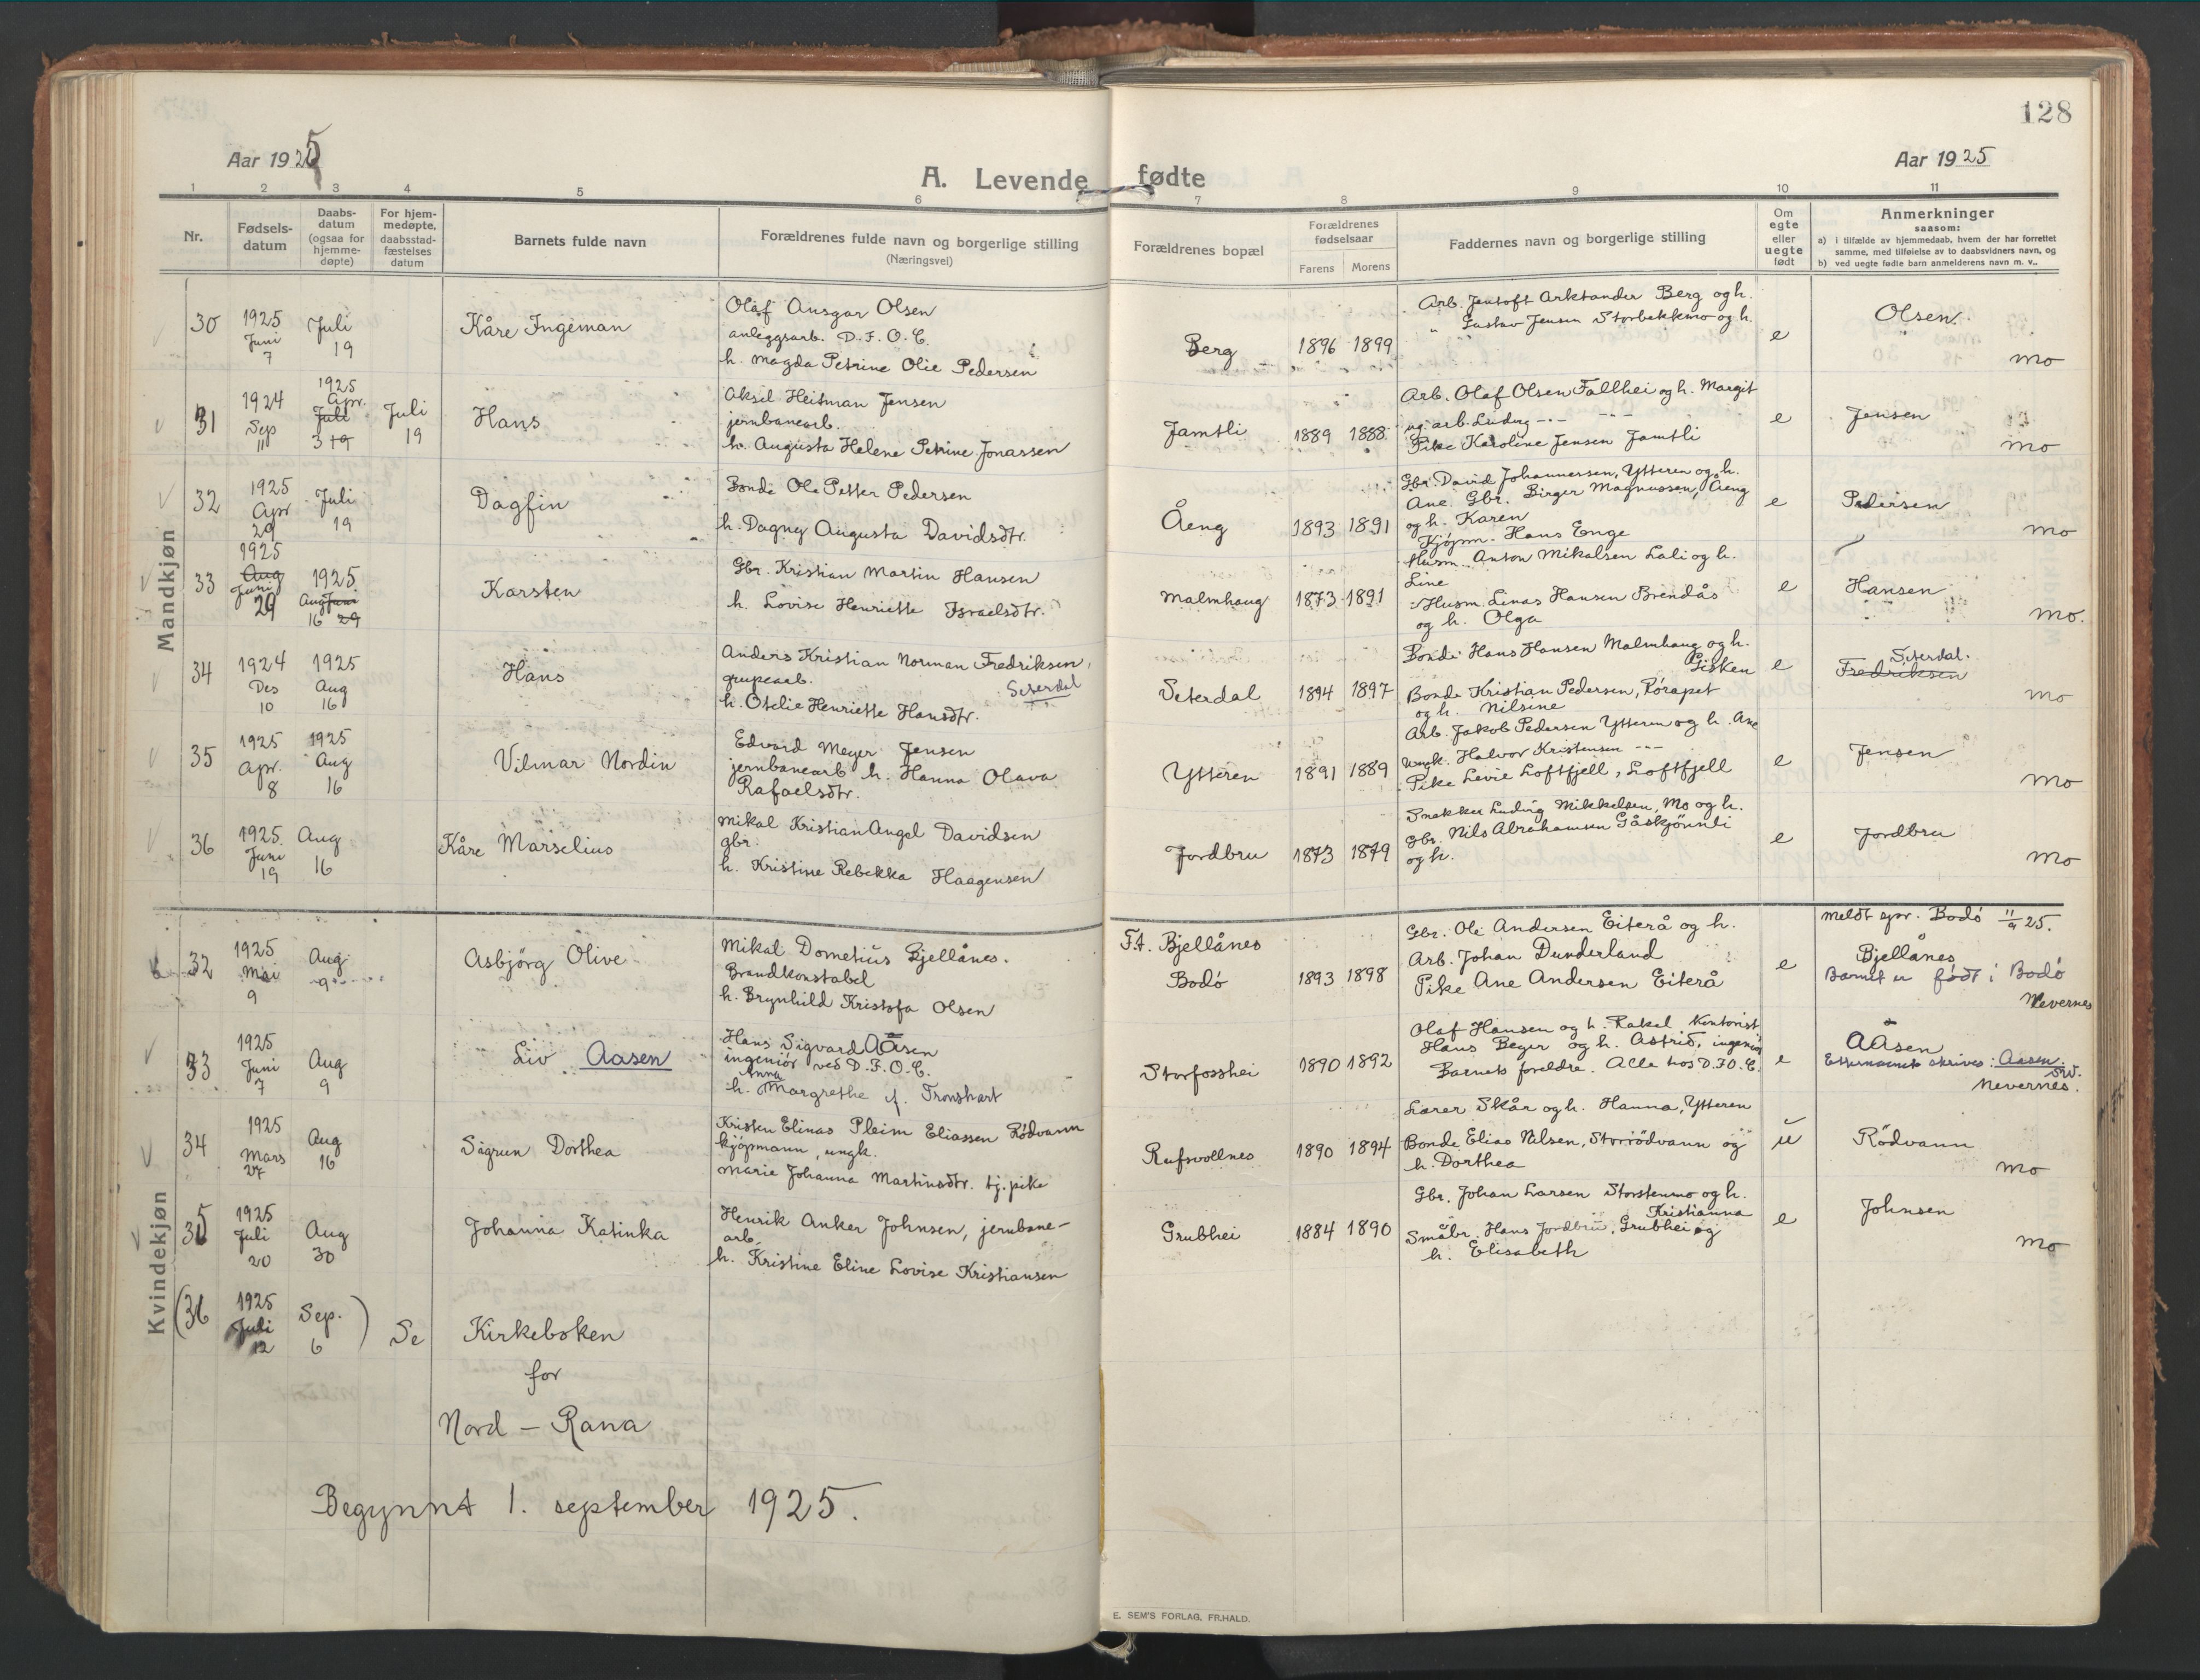 128
Aar 1925
A. Levende fødte
Aar 1925
1 2 3 4 5 6 7 8 9 10 11
Nr.
Fødsels-
datum
Daabs-
datum
(ogsaa for
hjemme-
døpte)
For hjem-
medøpte,
daabsstad-
fæstelses
datum
Barnets fulde navn
Forældrenes fulde navn og borgerlige stilling
(Næringsvei)
Forældrenes bopæl
Forældrenes
fødselsaar
Farens Morens
Faddernes navn og borgerlige stilling
Om
egte
eller
uegte
født
Anmerkninger
saasom:
a) i tilfælde av hjemmedaab, hvem der har forrettet
samme, med tilføielse av to daabsvidners navn, og
b) ved uegte fødte barn anmelderens navn m. v..
Mandkjøn
30
1925
Juni
7
Juli
19
Kåre Ingeman
Olaf Ansgar Olsen
anleggsarb. D.F.O.C.
h. Magda Petrine Olie Pedersen
Berg
1896 1899
Arb. Jentoft Arktander Berg og h.
" Gustav Jensen Storbekkmo og h.
e
Olsen.
Mo
31
1924
Sep
11
1925
Apr.
Juli
3 19
Juli
19
Hans
Aksel Heitman Jensen
jernbanearb.
h. Augusta Helene Petrine Jonassen
Jamtli
1889 1888
Arb. Olaf Olsen Fallhei og h. Margit
ug. arb. Ludvig -"- -"-
Pike Karoline Jensen Jamtli
e
Jensen
Mo
32
1925
Apr
29
Juli
19
Dagfin
Bonde Ole Petter Pedersen
h. Dagny Augusta Davidsdtr.
Åeng
1893 1891
Gbr. David Johannersen, Ytteren og h.
Ane Gbr. Birger Magnussen, Åeng
og h. Karen
Kjøpm. Hans Enge
e
Pedersen
Mo
33
1925
Aug
Juni
29
1925
Aug Juni
16 29
Karsten
Gbr. Kristian Martin Hansen
h. Lovise Henriette Israelsdtr.
Malmhaug
1873 1891
Husm. Anton Mikalsen Lali og h.
Line
Husm. Linas Hansen Brendås
og h. Olga
e
Hansen
Mo.
34
1924
Des
10
1925
Aug
16
Hans
Anders Kristian Norman Fredriksen,
grupearb. Seterdal
h. Otelie Henriette Hansdtr.
Seterdal
1894 1897
Bonde Hans Hansen Malmhaug og h.
Gisken
Bonde Kristian Pedersen, Rórapet
og h. Nilsine
e
Seterdal.
Fredriksen
Mo
35
1925
Apr.
8
1925
Aug
16
Vilmar Nordin
Edvard Meyer Jensen
jernbanearb h. Hanna Olava
Rafaelsdtr.
Ytteren
1891 1889
Arb. Jakob Pedersen Ytteren og h. Ane
Ungk. Halvor Kristensen -"-
Pike Levie Loftfjell, Loftfjell
e
Jensen
Mo
36
1925.
Juni
19
Aug
16
Kåre Marselius
Mikal Kristian Angel Davidsen
gbr.
h. Kristine Rebekka Haagensen
Jordbru
1873 1879
Snekker Ludvig Mikkelsen, Mo og h.
Gbr. Nils Abrahamsen Gåskjønnli
og h.
e
Jordbru
Mo
Kvindekjøn
32
1925
Mai
9
Aug
9
Asbjörg Olive
Mikal Dometius Bjellånes.
Brandkonstabel
h. Brynhild Kristofa Olsen
F.t. Bjellånes
Bodö
1893 1898
Gbr. Ole Andersen Eiterå og h.
Arb. Johan Dunderland
Pike Ane Andersen Eiterå
e
Meldt spr. Bodö 11/9 25.
Bjellånes
Barnet er født i Bodö
Nevernes
33
1925
Juni
7
Aug
9
Liv Aasen
Hans Sigvard Aasen
ingeniör ved D.F.O.C.
Anna
h. Margrethe f. Tronshart
Storfosshei
1890 1892
Olaf Hansen og h. Rakel, Kontorist
Hans Beyer og h. Astrid, ingeniör
Barnets foreldre. Alle hos D.F.O.C.
e
Aasen
Etternamnet skrives: Aasen.
Nevernes.
34
1925
Mars
27
Aug
16
Sigrun Dorthea
Kristen Elinas Pleim Eliassen Rödvann
kjöpmann, ungk.
Marie Johanna Martinsdtr. tj. pike
Rufsvollnes
1890 1894
Lærer Skår og h. Hanna, Ytteren
Bonde Elias Nilsen, Storrödvann og
h. Dorthea
u
Rödvann
Mo
35
1925
Juli
20
Aug
30
Johanna Katinka
Henrik Anker Johnsen, jernbane-
arb.
h. Kristine Eline Lovise Kristiansen
Grubhei
1884 1890
Gbr. Johan Larsen Storstenmo og h.
Kristianna
Småbr. Hans Jordbru, Grubhei og
h. Elisabeth
e
Johnsen
Mo
(36
1925
Juli
12
Sep.
6 )
Se Kirkeboken
for
Nord - Rana
Begynnt 1. september 1925.
E. SEM'S FORLAG, FR.HALD.